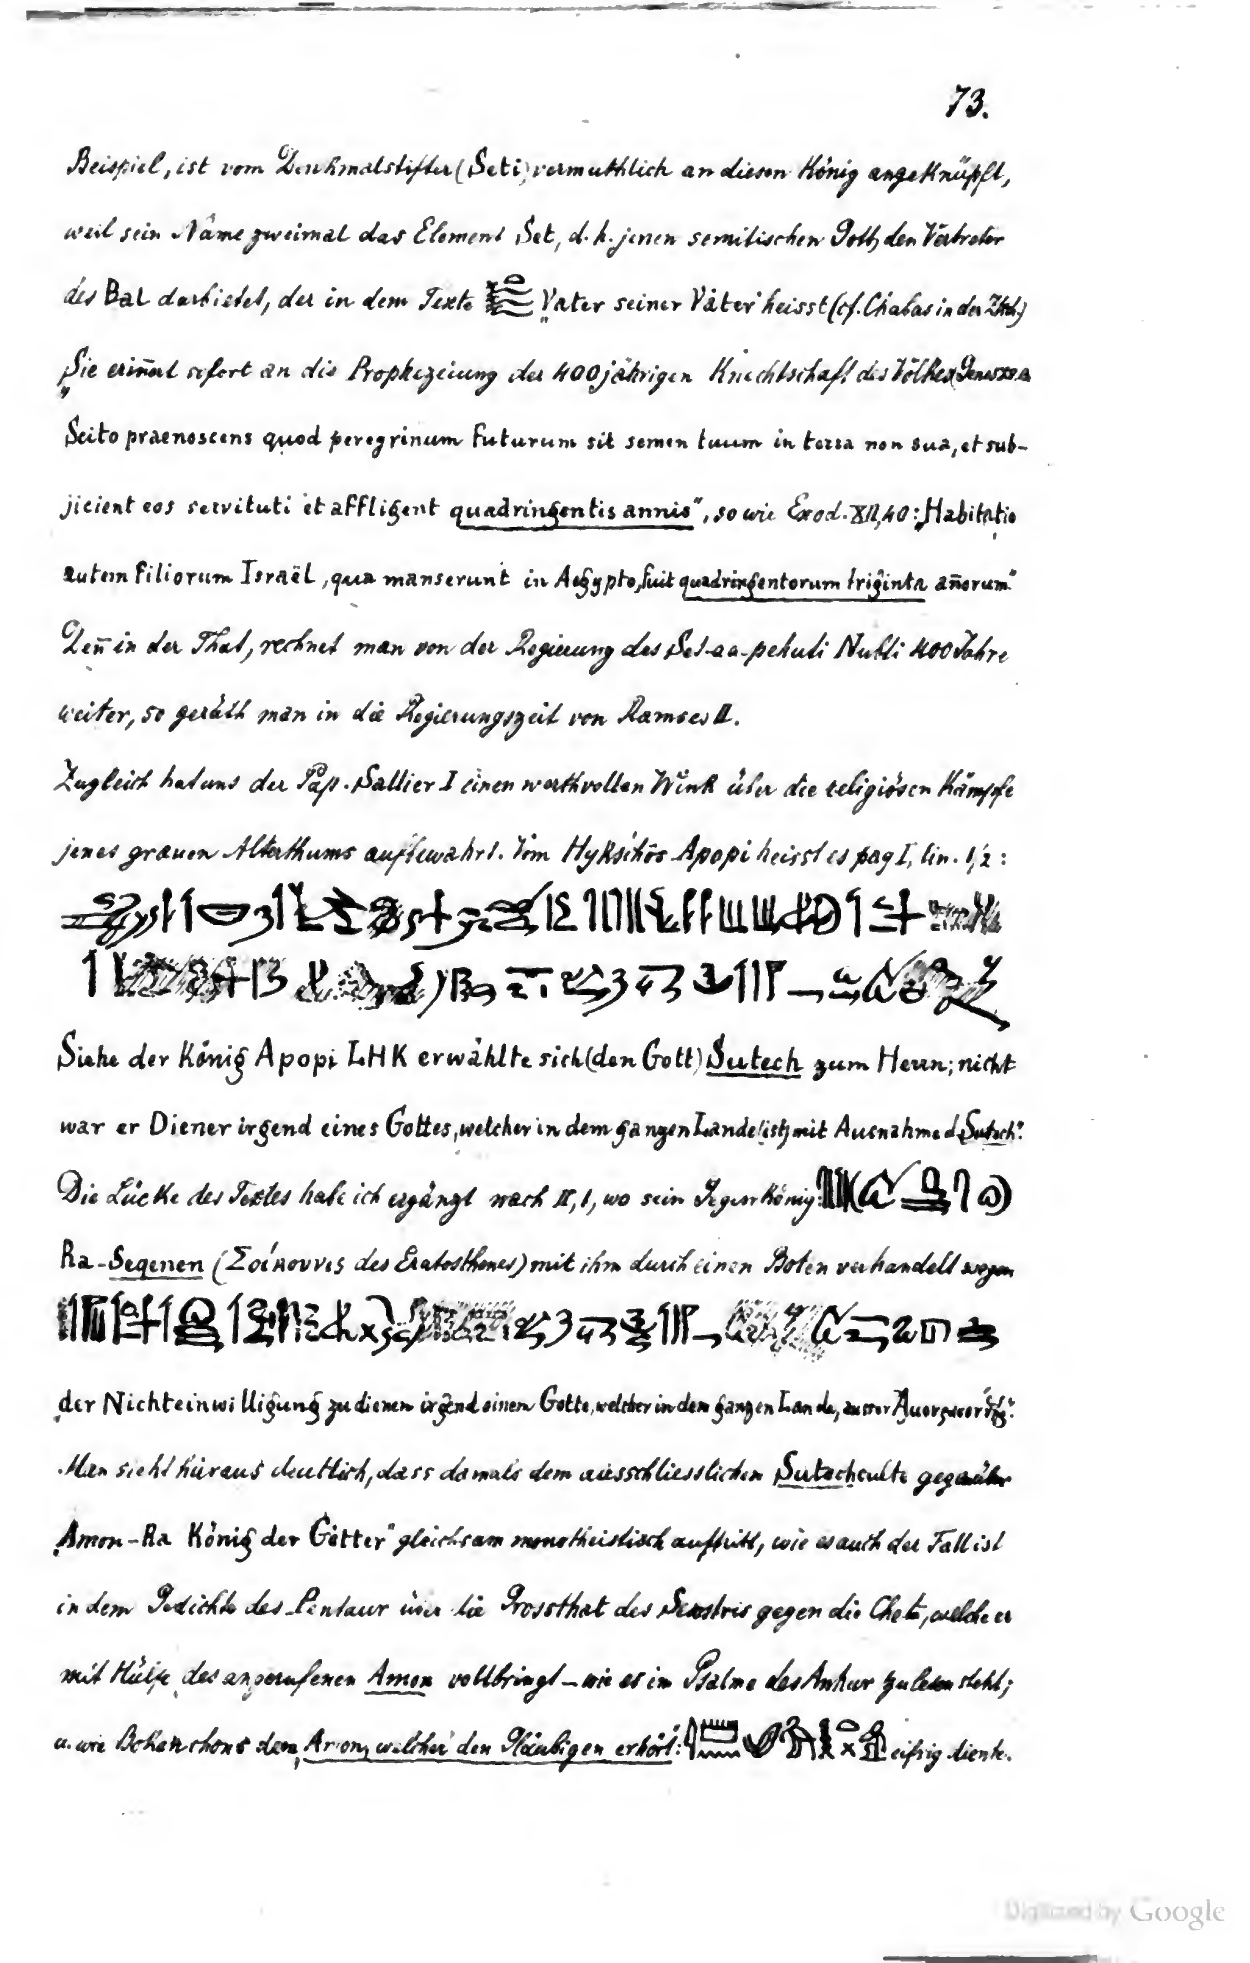 73.
Beispiel, ist vom Denkmalstifter (Seti) vermuthlich an diesen König angeknüpft,
weil sein Name zweimal das Element Set, d. h. jenen semitischen Gott, den Vertreter
des Bal darbietet, der in dem Texte „Vater seiner Väter" heisst (cf. Chabas in der Ztsch.)
„Sie erin̄ert sofort an die Prophezeiung der 400jährigen Knechtschaft des Volkes
Scito praenoscens quod peregrinum futurum sit semen tuum in terra non sua, et sub-
jicient eos servituti et affligent quadringentis annis", so wie Exod. XII,40: „Habitatio
autem filiorum Israël, qua manserunt in Aegypto, fuit quadringentorum triginta an̄orum"
Den̄ in der That, rechnet man von der Regierung des Set-aa-pehuti Nubti 400 Jahre
weiter, so geräth man in die Regierungszeit von Ramses II.
Zugleich hat uns der Pap. Sallier I einen werthvollen Wink über die religiösen Kämpfe
jenes grauen Alterthums aufbewahrt. Vom Hykschôs Apopi heisst es pag I, lin. 1/2 :
Siehe der König Apopi LHK erwählte sich (den Gott) Sutech zum Herrn; nicht
war er Diener irgend eines Gottes, welcher in dem ganzen Lande (ist) mit Ausnahme d. Sutech".
Die Lücke des Textes habe ich ergänzt nach II, 1, wo sein Gegenkönig:
Ra-Seqenen (Σοίκουνις des Eratosthenes) mit ihm durch einen Boten verhandelt wegen
„der Nichteinwilligung zu dienen irgend einem Gotte, welcher in dem ganzen Lande, ausser
Man sieht hieraus deutlich, dass damals dem ausschliesslichen Sutechculte gegenüber
„Amon-Ra König der Götter" gleichsam monotheistisch auftritt, wie es auch der Fall ist
in dem Gedichte des Pentaur über die Grossthat des Sesostris gegen die Cheta, welche er
mit Hülfe des angerufenen Amon vollbringt – wie es im Psalme des Anhur zu lesen steht;
u. wie Bokenchons dem „Amon, welcher den Gläubigen erhört": eifrig diente.
Digitized by Google